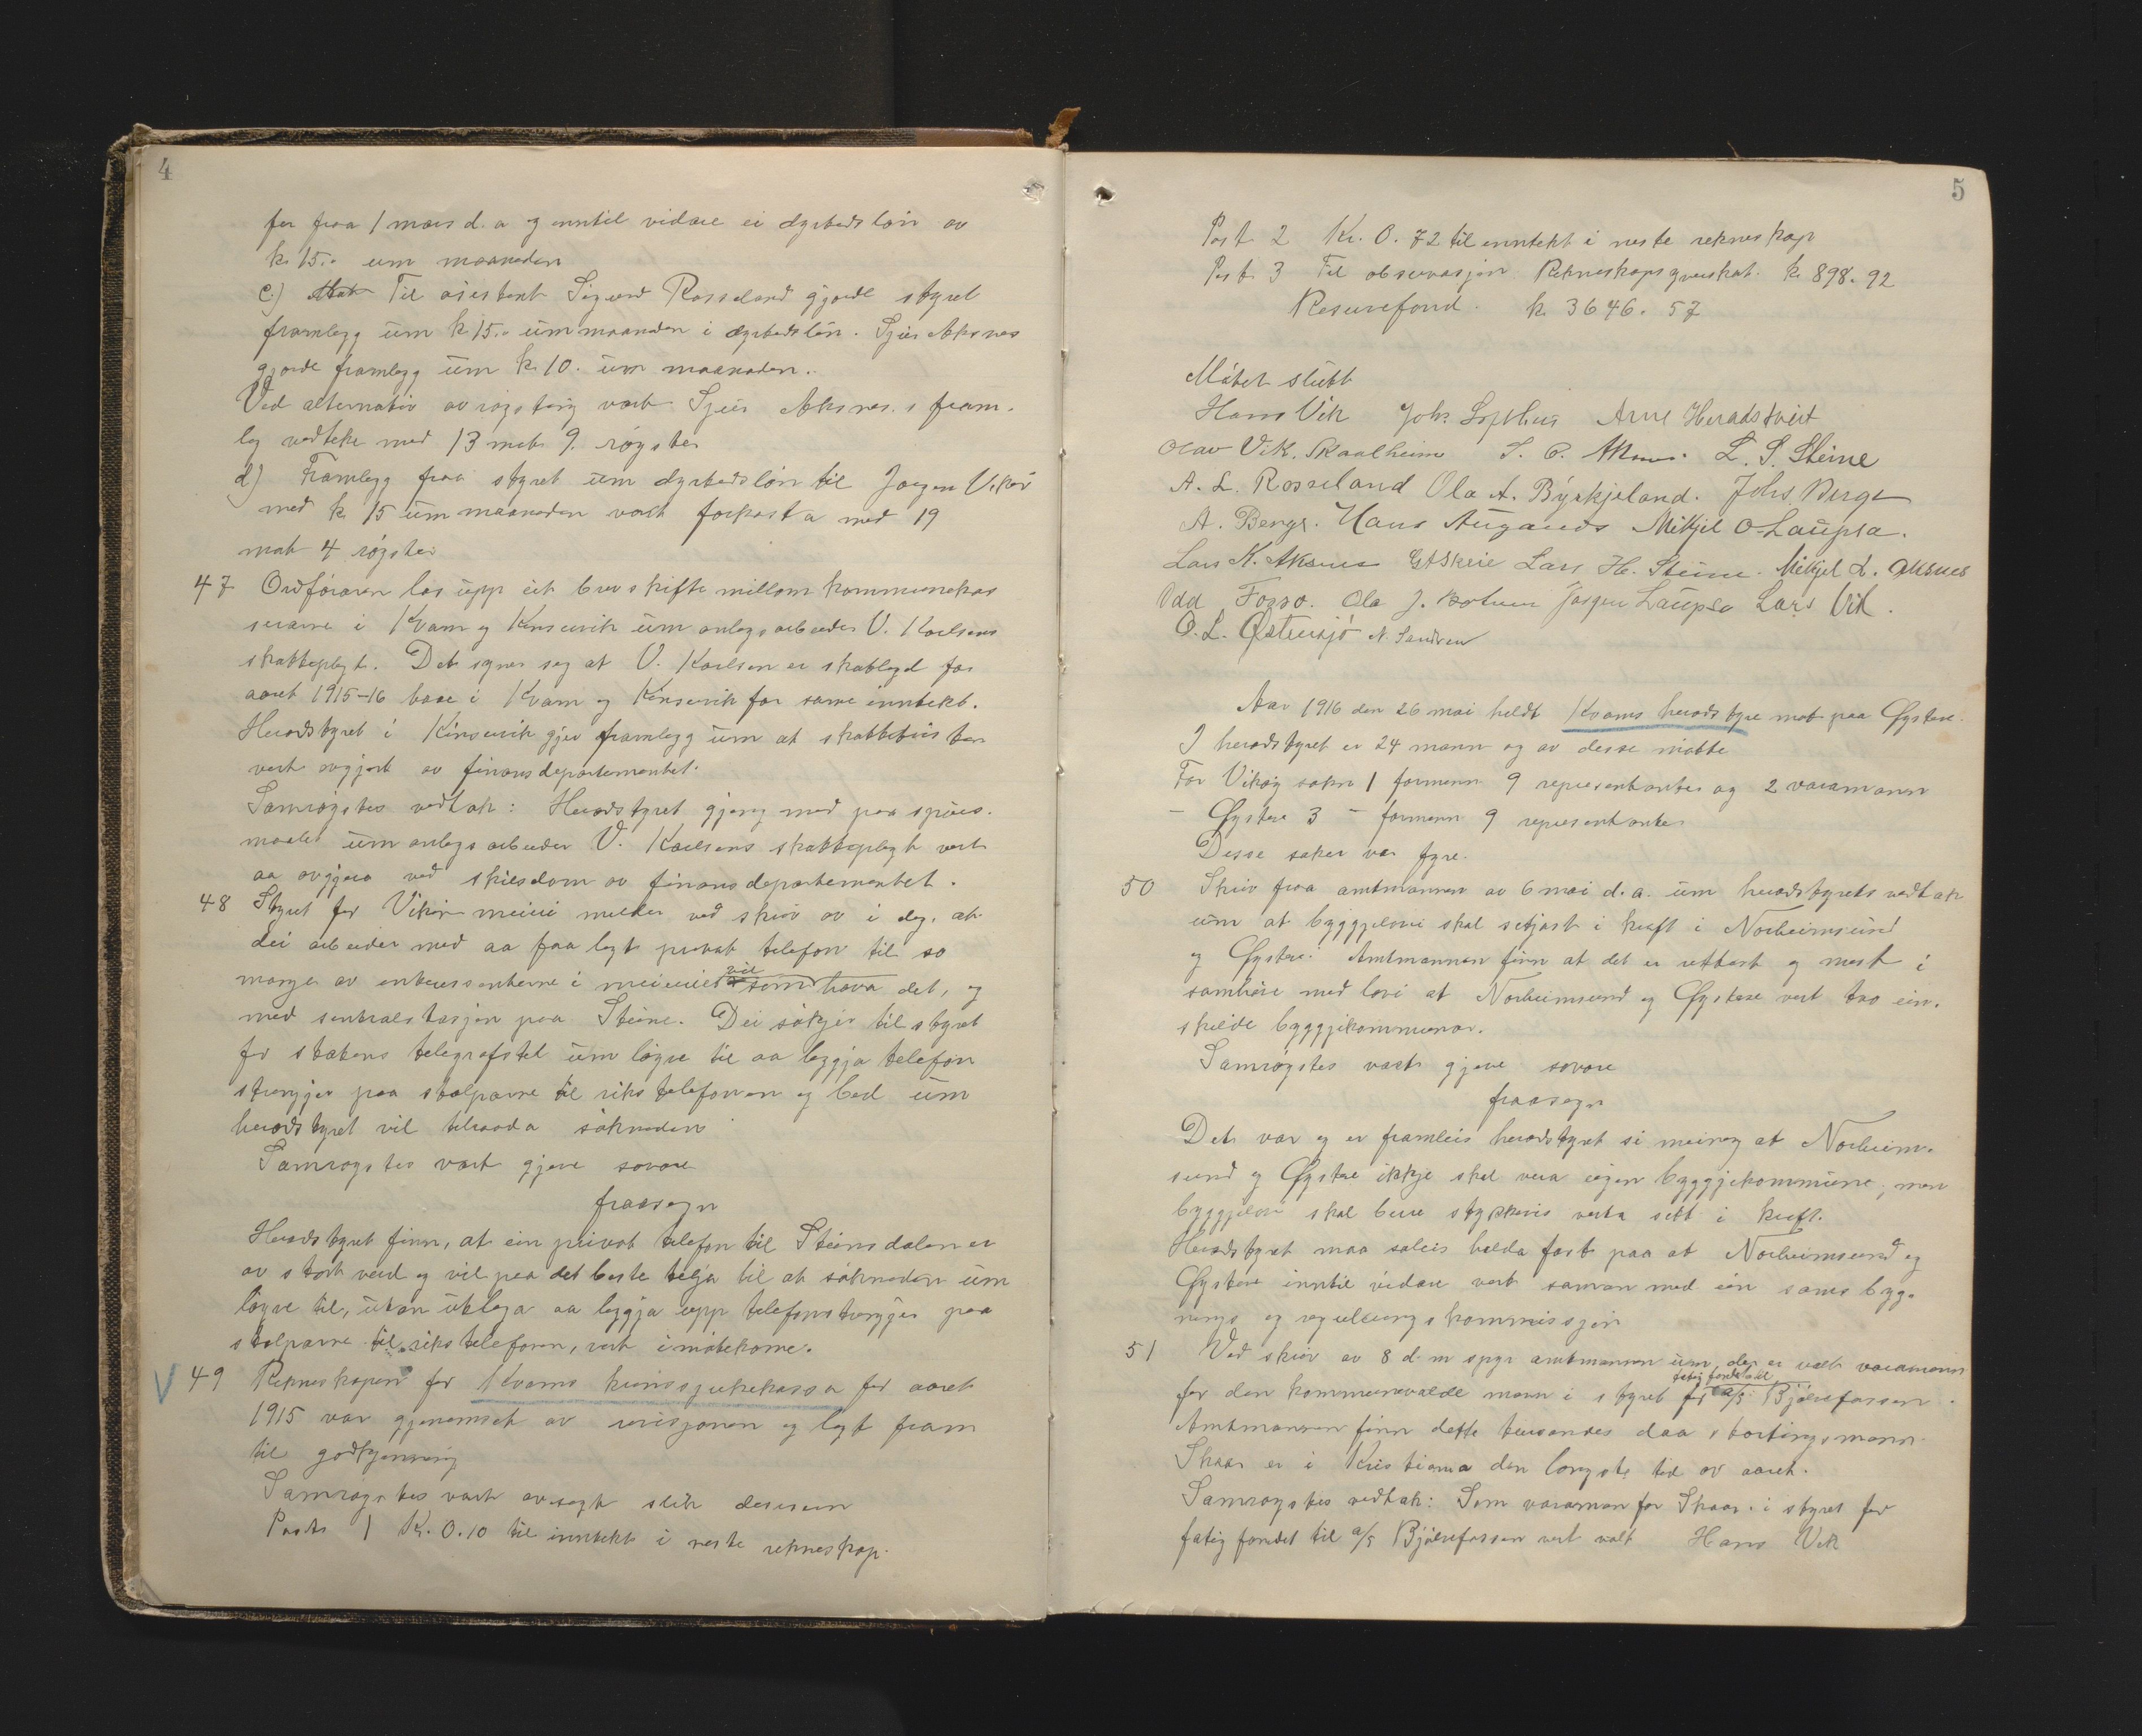 4
for fraa 1 mars d. a og inntil vidare ei dyrtidslön av
kr 15.. um maanaden
c.) Til asistent Sigurd Rosseland gjorde styret
framlegg um kr 15.. um maanaden i dyrtidslön. Sjur Aksnes
gjorde framlegg um kr 10. um maanaden.
Ved alternativ avrøysting vart Sjur Aksnes's fram-
leg vedteke med 13 mot 9. røyster
d) Framlegg fraa styret um dyrtidslön til Jørgen Vikør
med kr 15 um maanaden vart forkasta med 19
mot 4 røyster
47 Ordføraren las upp eit brevskifte millom kommunekas
serarne i Kvam og Kinservik um anlegsarbeider V. Karlsens
skatteplegt. Det syner seg at V. Karlsen er skatlagd for
aaret 1915-16 baae i Kvam og Kinservik for same inntekt.
Heradstyret i Kinservik gjer framlegg um at skattetvisten
vert avgjort av finansdepartementet.
Samrøystes vedtak: Heradstyret gjeng med paa spurs-
maalet um anlegsarbeider V. Karlsens skatteplegt vert
aa avgjera ved skilsdom av finansdepartementet.
48 Styret for Vikör meieri melder ved skriv av i dag, at
dei arbeider med aa faa lagt privat telefon til so
mange av interessenterne i meieriet som vil hava det, og
med sentralstasjon paa Steine. Dei søkjer til styret
for statens telegrafstel um løyve til aa leggja telefon
strengjer paa stolparne til rikstelefonen og bed um
heradstyret vil tilraada søknaden
Samrøystes vart gjeve sovore
fraasegn
Heradstyret finn, at ein privat telefon til Steinsdalen er
av stort verd og vil paa det beste telja til at søknaden um
løyve til, utan utlega aa leggja upp telefonstrengjer paa
stolparne til rikstelefonen, vert imøtekome.
V 49 Rekneskapen for Kvams krinssjukekassa for aaret
1915 var gjenomset av revisjonen og lagt fram
til godkjenning
Samrøystes vart avsagt slik desisjon
Post 1 Kr. 0.10 til inntekt i neste rekneskap.
5
Post 2 Kr. 0.72 til inntekt i neste rekneskap
Post 3 Til observasjon Rekneskapsyverskot. kr 898.92
Reservefond. kr 3646.57
Møtet slutt
Hans Vik Johs Lofthus Arne Heradstveit
Olav Vik. Skaalheim S. P. Aksnes. L. S. Steine
A. L. Rosseland Ola A. Byrkjeland. Johs Berge
A. Berge. Hans Augands Mikjel O Laupsa.
Lars K. Aksnes G A Skeie Lars H. Steine. Mikjel L. Aksnes
Odd Fosso. Ola J. Botnen Jørgen Laupsa Lars Vik.
O. L. Østensjø N. Sandven
Aar 1916 den 26 mai heldt Kvams heradstyre møt paa Øystese.
I heradstyret er 24 mann og av desse møtte
For Vikøy sokn 1 formann 9 representanter og 2 varamann
— Øystese 3 — formenn 9 representanter
Desse saker var fyre.
50 Skriv fraa amtmannen av 6 mai d. a. um heradstyrets vedtak
um at byggjelovi skal setjast i kraft i Norheimsund
og Øystese. Amtmannen finn at det er rettast og mest i
samhøve med lovi at Norheimsund og Øystese vert tvo ein-
skilde byggjekommunar.
Samrøystes vart gjeve sovore
fraasegn
Det var og er framleis heradstyret si meining at Norheim-
sund og Øystese ikkje skal vera eigen byggjekommune, men
byggjelovi skal berre stykkevis verta sett i kraft.
Heradstyret maa soleis halda fast paa at Norheimsund og
Øystese inntil vidare vert saman med ein sams byg-
nings og reguleringskommissjon
51 Ved skriv av 8 d. m spyr amtmannen um, der er valt varamann
for den kommunevalde mann i styret for fatig fondet til a/s Bjølvefossen.
Amtmannen finn dette turvandes daa stortingsmann
Skaar er i Kristiania den lengste tid av aaret.
Samrøystes vedtak: Som varaman for Skaar i styret for
fatig fondet til a/s Bjølvefossen vert valt Hans Vik